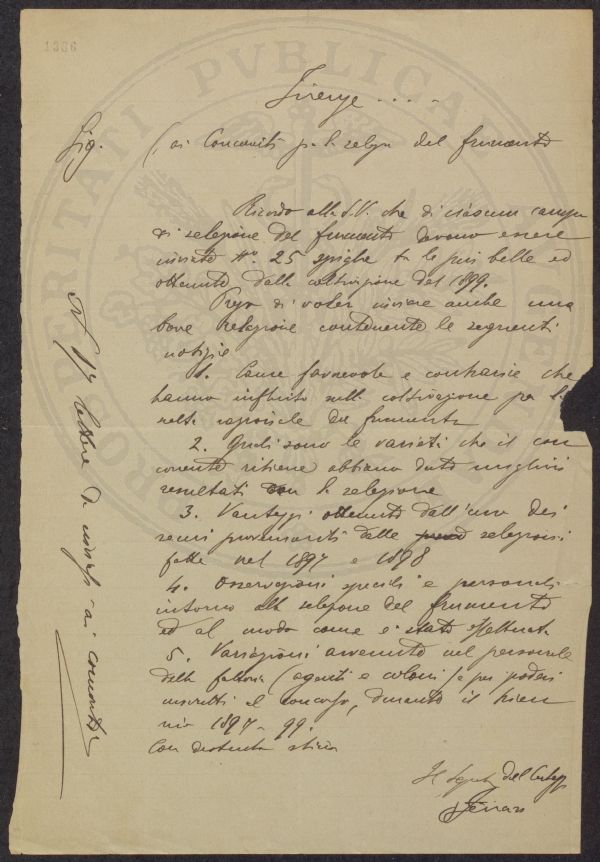 1386
PROSPERITATI PVBLICAE
Firenze . . . .
Sig. (ai Concorrenti p. la selez. del frumento
Ricordo alla S.V. che di ciascun campo
di selezione del frumento devono essere
inviate N° 25 spighe tra le più belle ed
ottenute dalla coltivazione del 1899.
Prego di voler inviare anche una
breve Relazione contenente le seguenti
notizie
1. Cause favorevoli e contrarie che
hanno influito sulla coltivazione per la
scelta del frumento
2. Quali sono le varietà che il con
corrente ritiene abbiano dato migliori
resultati con la selezione
3. Vantaggi ottenuti dall'uso dei
semi provenienti dalle selezioni
fatte nel 1897 e 1898
4. Osservazioni speciali e personali
intorno alla selezione del frumento
ed al modo come è stata effettuata
5. Variazioni avvenute nel personale
della fattoria (agenti e coloni) e pei poderi
inscritti al concorso, durante il trien
nio 1897-99.
Con distinta stima
Il Segret. del
Ferrari
N° lettere di invito ai concorrenti